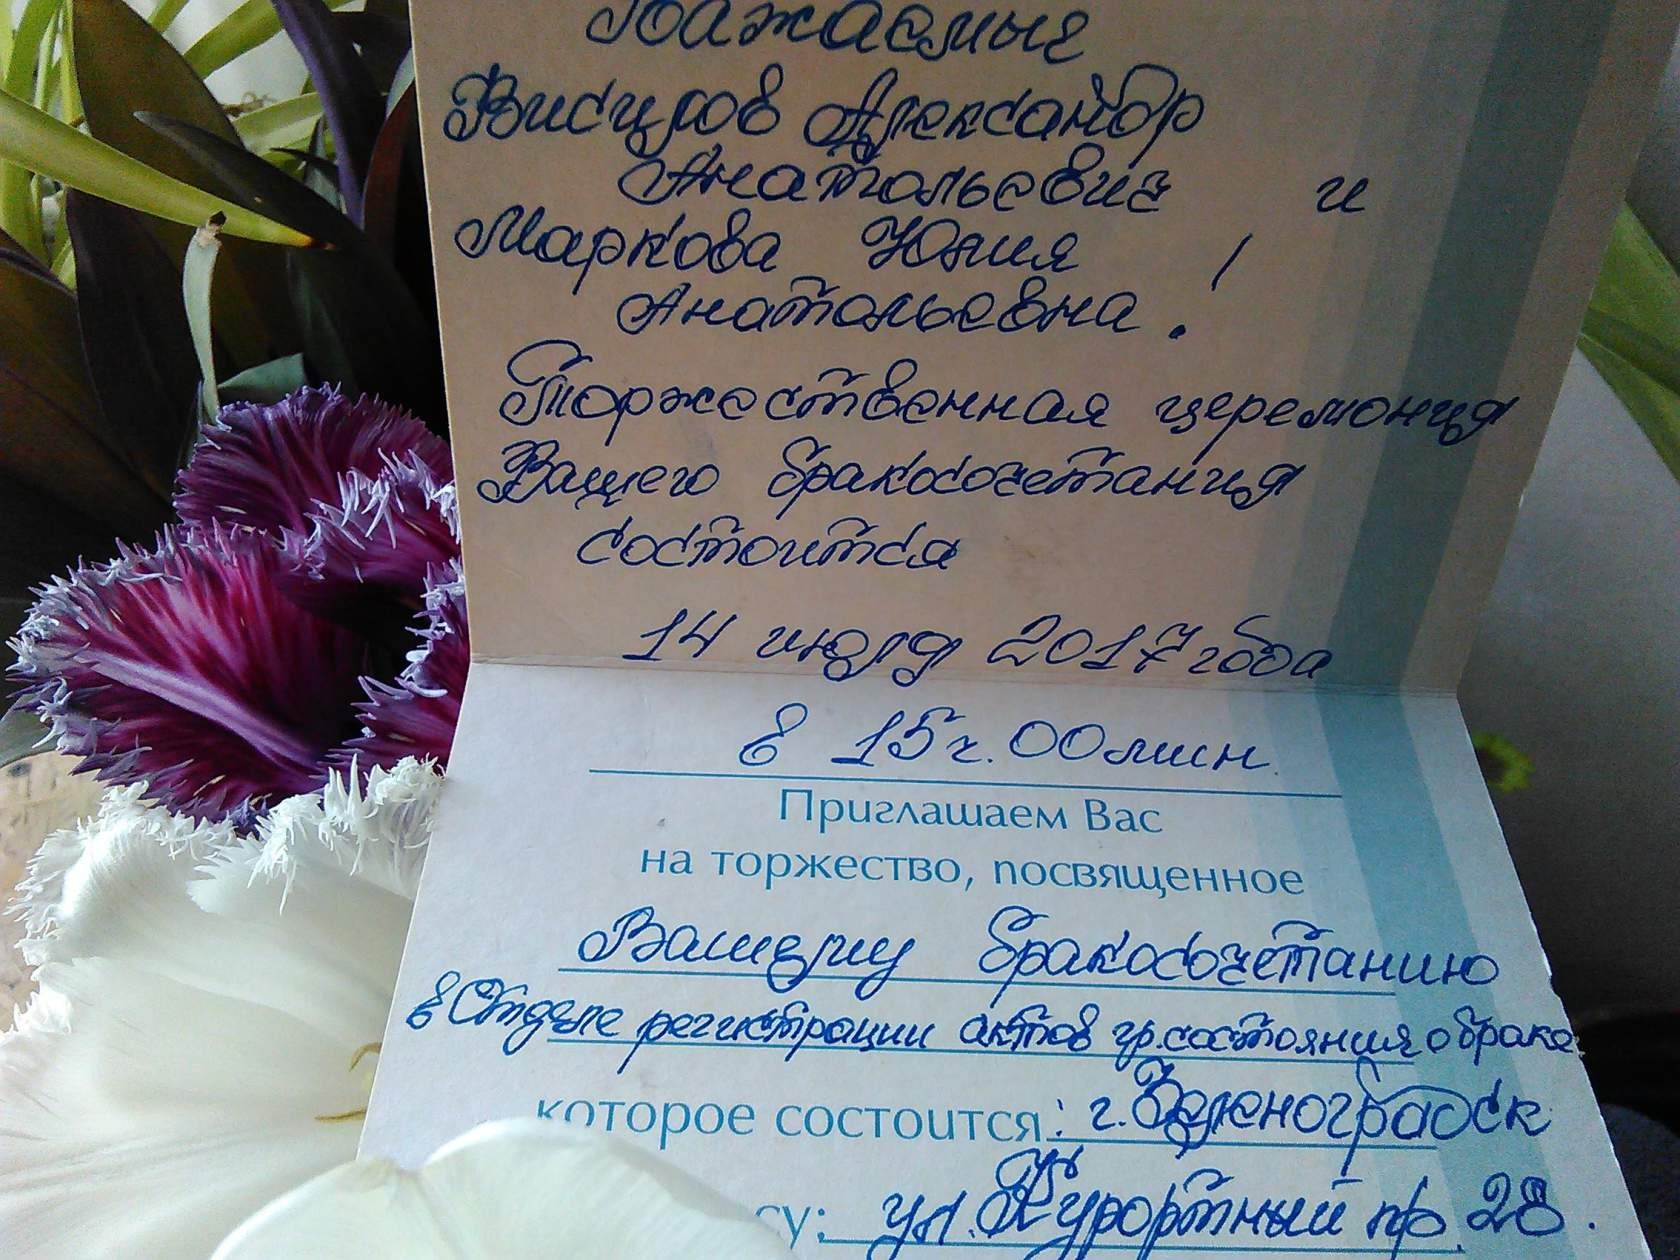 Уважаемые
Висцров Александр
Анатольевич и
Маркова Юлия
Анатольевна !
Торжественная церемония
Вашего бракосочетания
состоится
14 июля 2017 года
в 15 ч. 00 мин.
Приглашаем Вас
на торжество, посвященное
Вашему бракосочетанию
в Отделе регистрации актов гр. состояния о браке
которое состоится: г. Зеленоградск
су: ул. Курортный пр. 28.